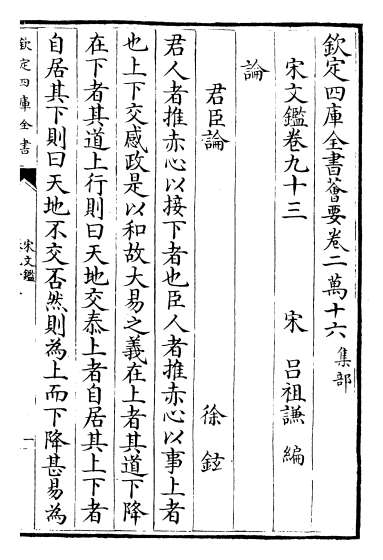 欽定四庫全書薈要卷二萬十六 集部
宋文鑑卷九十三
宋 呂祖謙 編
論
君臣論 徐鉉
君人者推赤心以接下者也臣人者推赤心以事上者
也上下交感政是以和故大易之義在上者其道下降
在下者其道上行則曰天地交泰上者自居其上下者
自居其下則曰天地不交否然則為上而下降甚易為
欽定四庫全書
宋文鑑
一